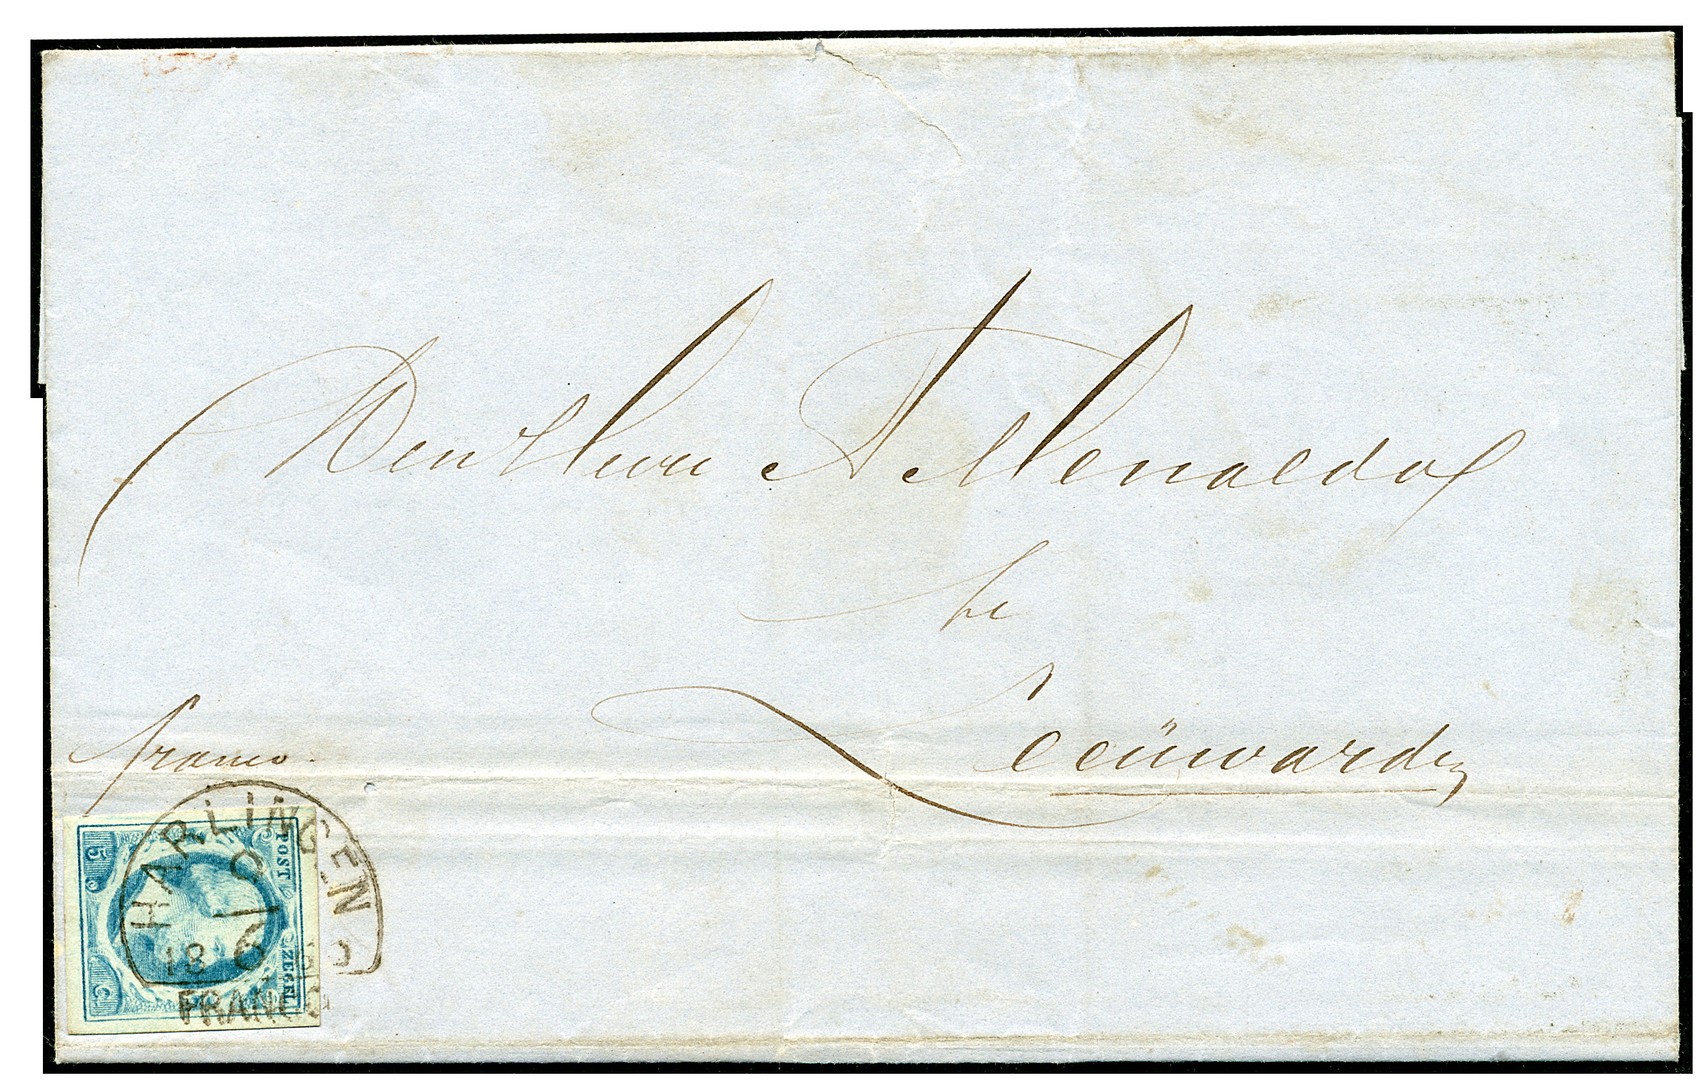 Den Heere A Menalda
te
Leeüwarden
franco.
HARLINGEN
9
18 6
FRANCO
POST
ZEGEL
5 C